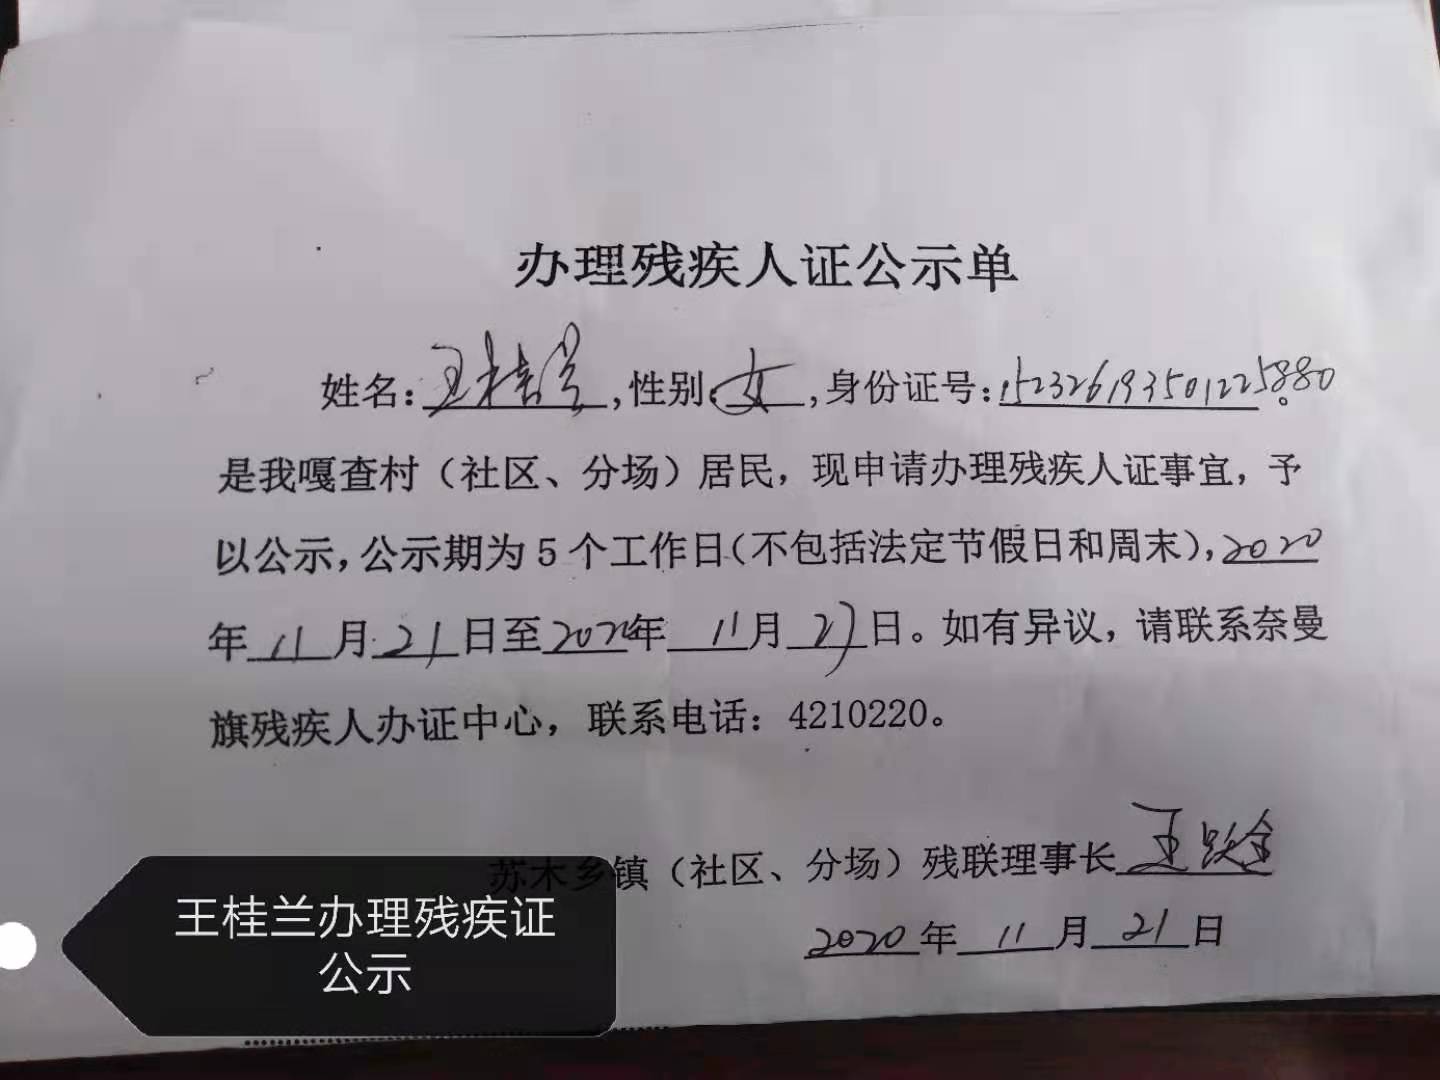 办理残疾人证公示单
姓名:王桂兰,性别:女,身份证号:152326193501225880。
是我嘎查村（社区、分场）居民，现申请办理残疾人证事宜，予
以公示，公示期为5个工作日（不包括法定节假日和周末），2020
年11月21日至2020年11月27日。如有异议，请联系奈曼
旗残疾人办证中心，联系电话：4210220。
苏木乡镇（社区、分场）残联理事长王跃全
2020年11月21日
王桂兰办理残疾证
公示